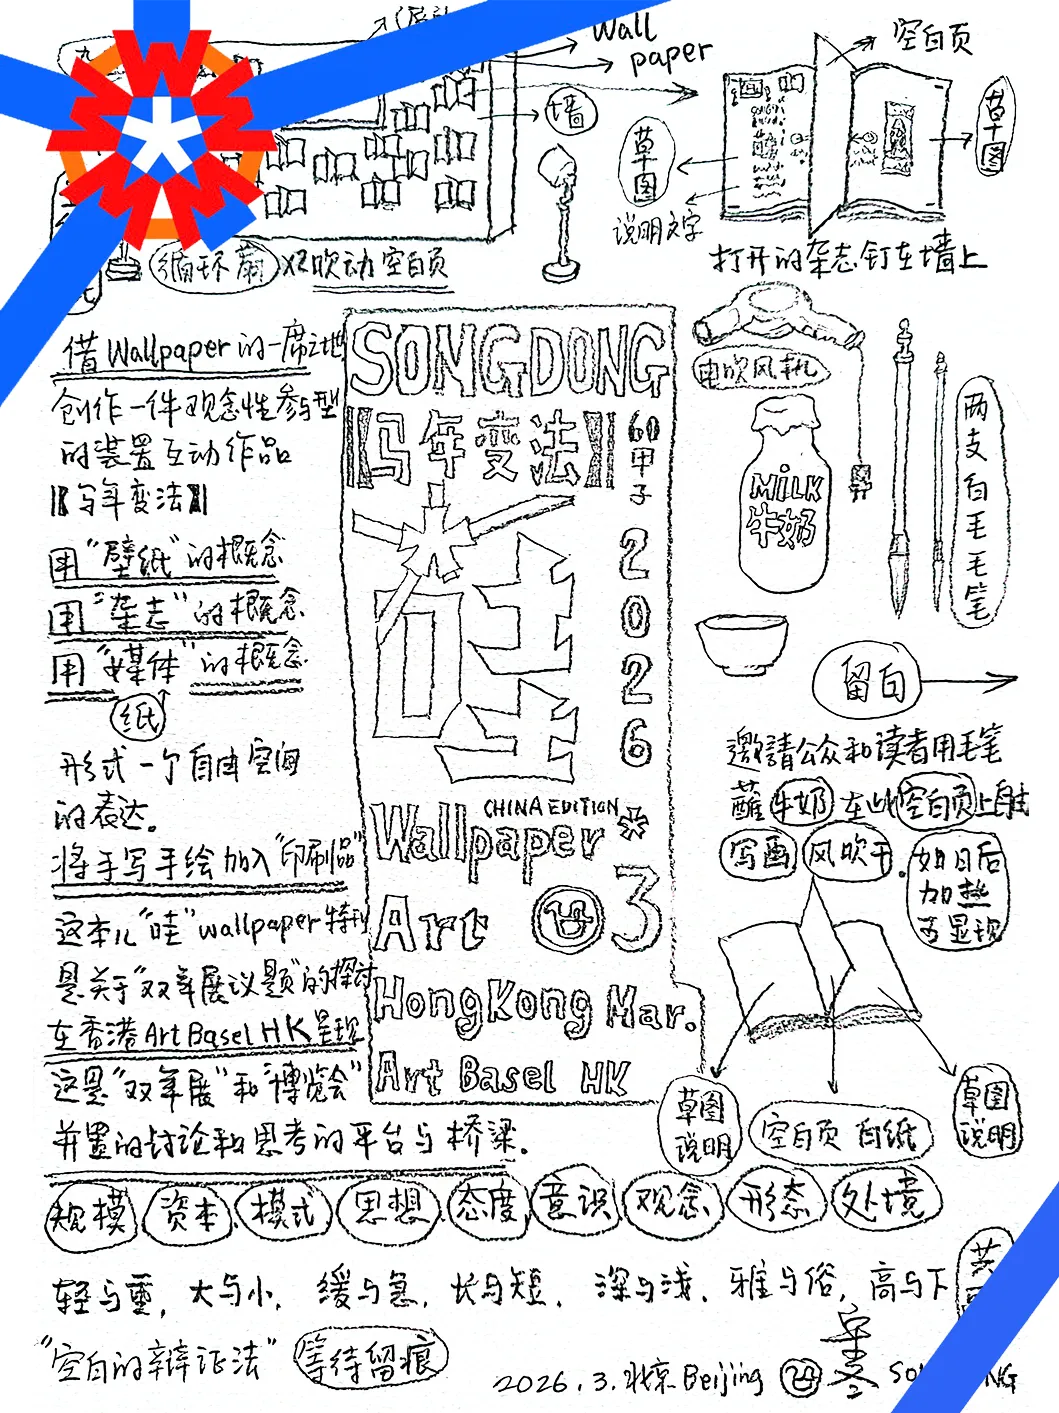 Wall
paper
空白页
墙
草图
草图
说明文字
循环扇 X2吹动空白页
打开的杂志钉在墙上
借Wallpaper的一席之地
创作一件观念性参与型
的装置互动作品
《马年变法》
用“壁纸”的概念
用“杂志”的概念
用“媒体”的概念
纸
形式一个自由空间
的表达。
将手写手绘加入“印刷品”
这本儿“哇”wallpaper特刊
是关于“双年展议题”的探讨
在香港Art Basel HK呈现
这是“双年展”和“博览会”
并置的讨论和思考的平台与桥梁.
SONGDONG
《马年变法》
60甲子2026
哇
CHINA EDITION
Wallpaper*
Art 3
HongKong Mar.
Art Basel HK
电吹风机
MiLK
牛奶
两支白毛毛笔
留白
邀請公众和读者用毛笔
蘸牛奶在此空白页上
写画 风吹干.
如日后
加热
可显现
草图
说明
空白页 白纸
草图
说明
规模 资本 模式 思想 态度 意识 观念 形态 处境
轻与重, 大与小, 缓与急, 长与短, 深与浅, 雅与俗, 高与下
“空白的辩证法” 等待留痕
2026.3.北京Beijing